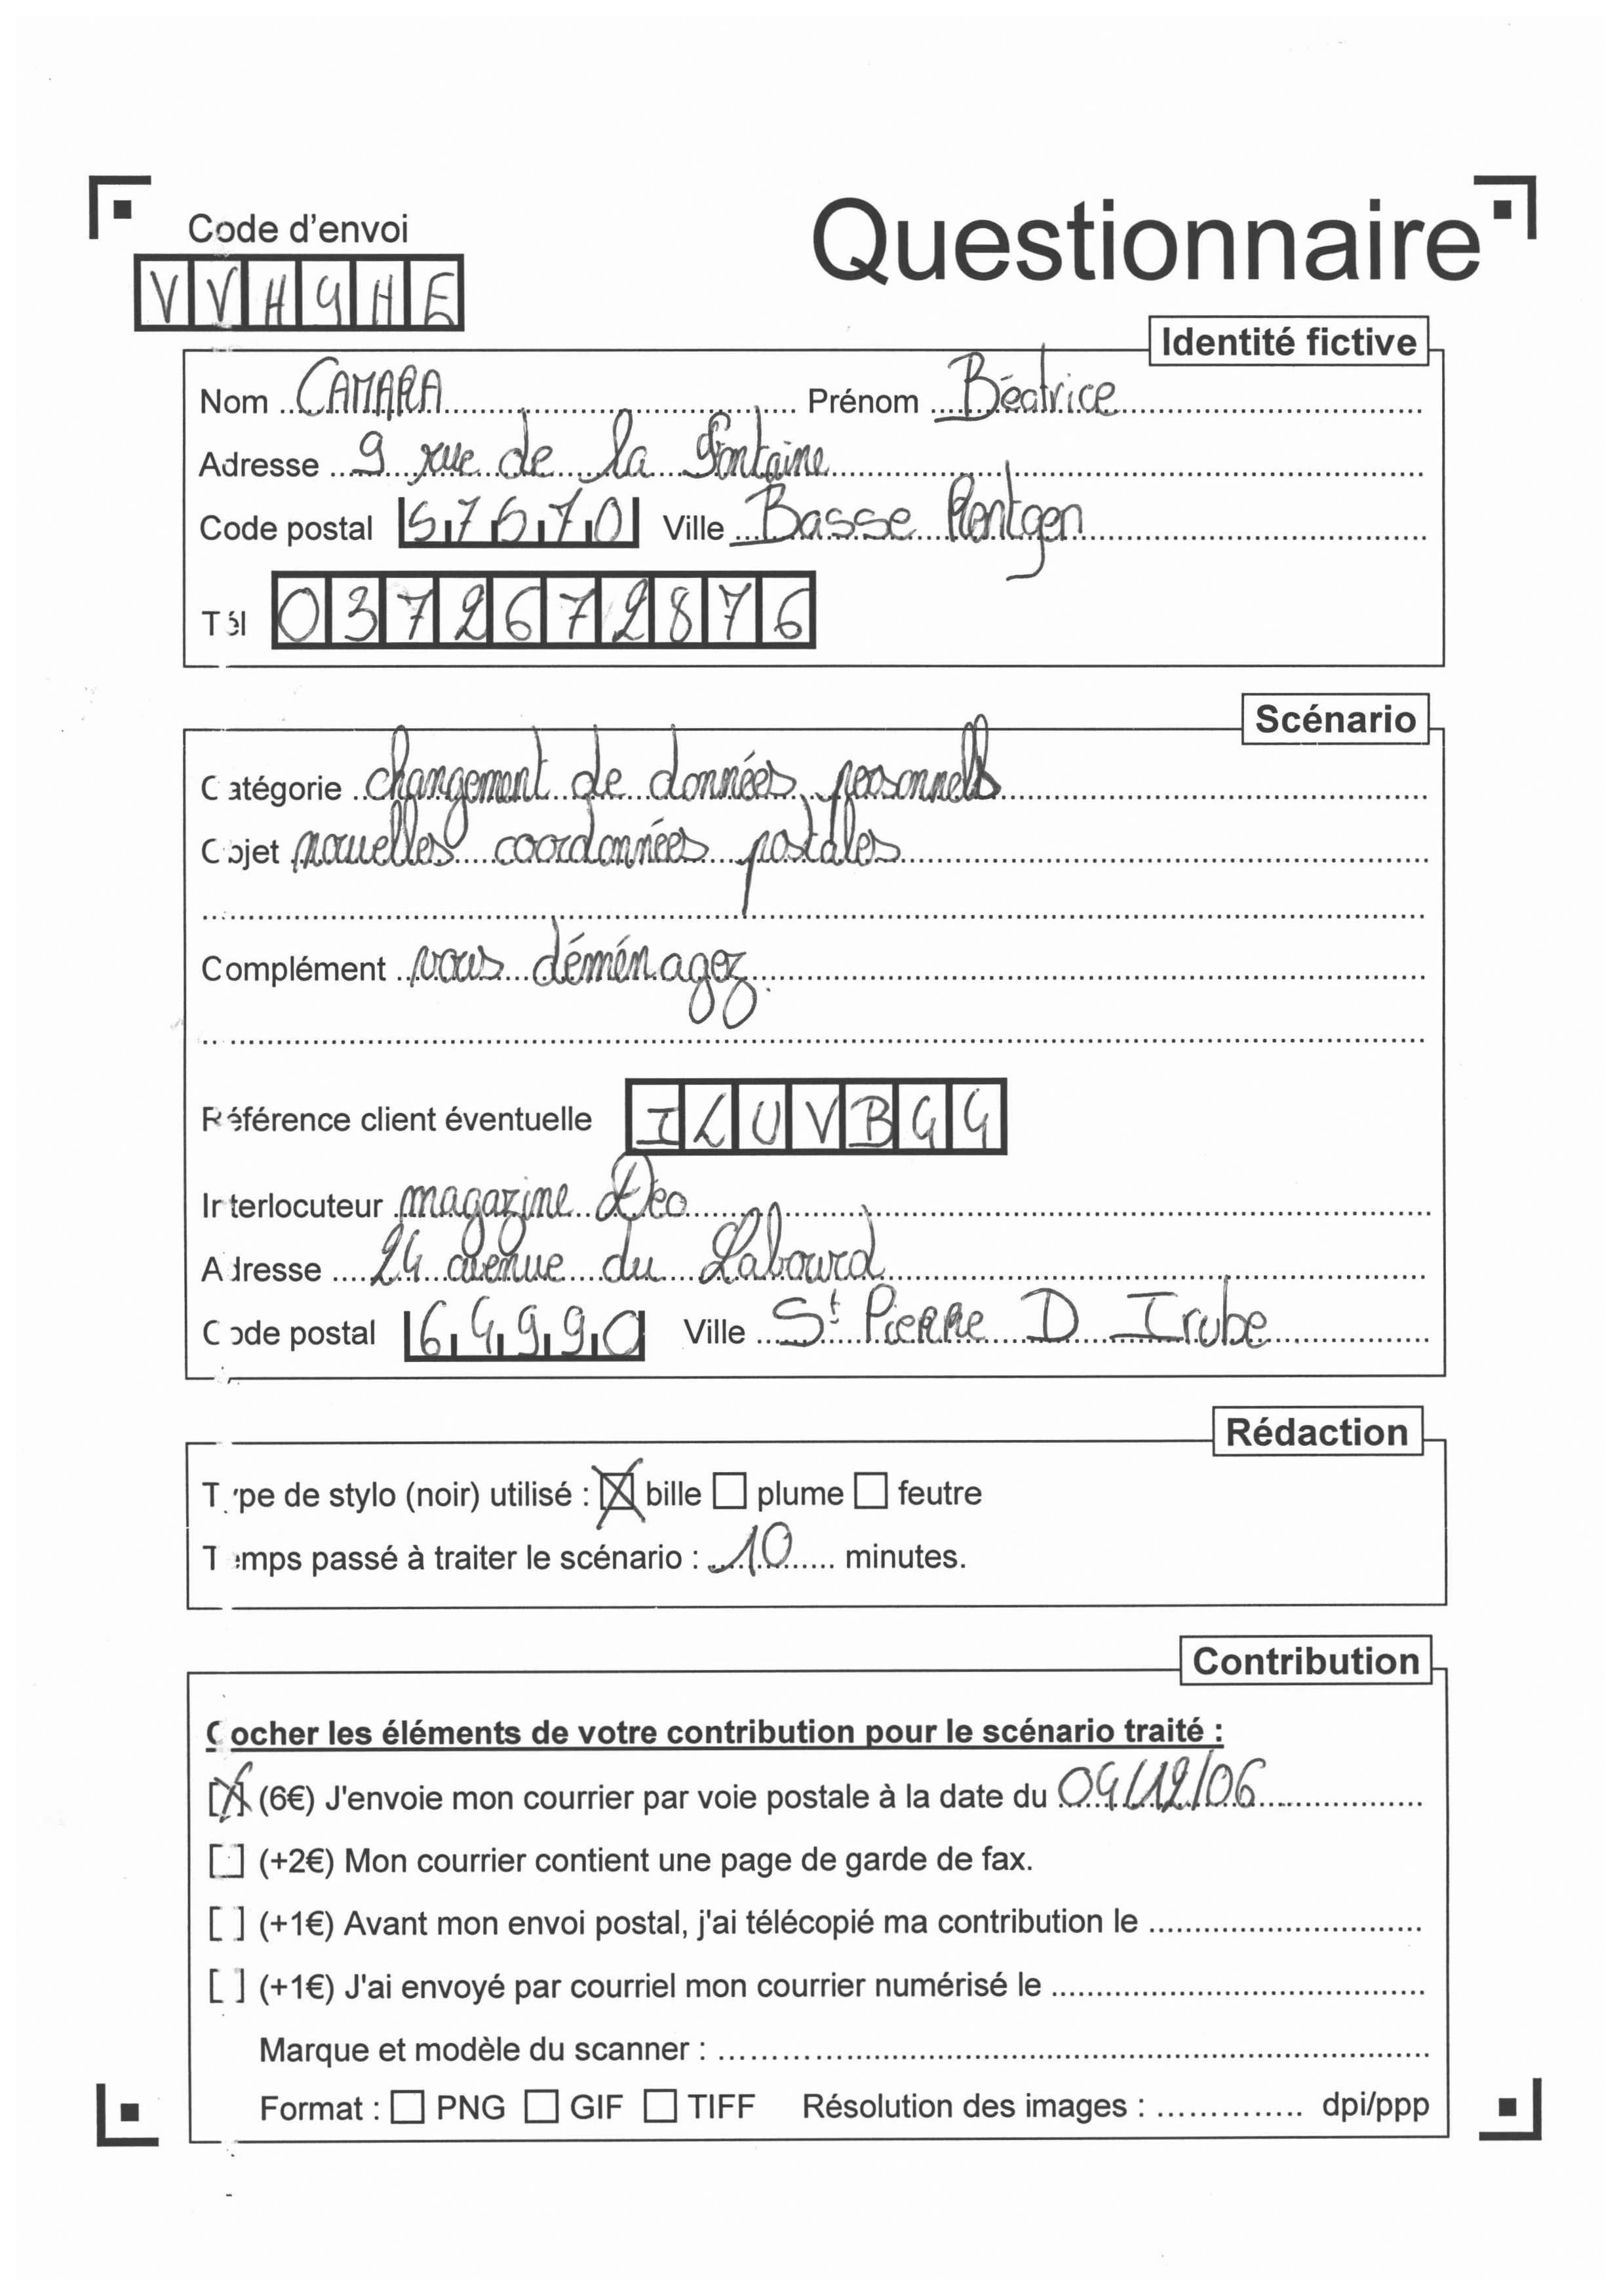 Code d'envoi
Questionnaire
VVHGHE
Identité fictive
Nom CAMARA Prénom Béatrice
Adresse 9 rue de la fontaine
Code postal 57570 Ville Basse Rentgen
Tél 0372672876
Scénario
Catégorie changement de données personnels
Objet nouvelles coordonnées postales
Complément vous déménagez.
Référence client éventuelle ILUVBGG
Interlocuteur magazine Déco
Adresse 24 avenue du Labourd
Code postal 64990 Ville St Pierre D Irube
Rédaction
Type de stylo (noir) utilisé : bille plume feutre
Temps passé à traiter le scénario : 10 minutes.
Contribution
Cocher les éléments de votre contribution pour le scénario traité :
[X] (6€) J'envoie mon courrier par voie postale à la date du 04/12/06
[ ] (+2€) Mon courrier contient une page de garde de fax.
[ ] (+1€) Avant mon envoi postal, j'ai télécopié ma contribution le
[ ] (+1€) J'ai envoyé par courriel mon courrier numérisé le
Marque et modèle du scanner :
Format : PNG GIF TIFF Résolution des images : dpi/ppp